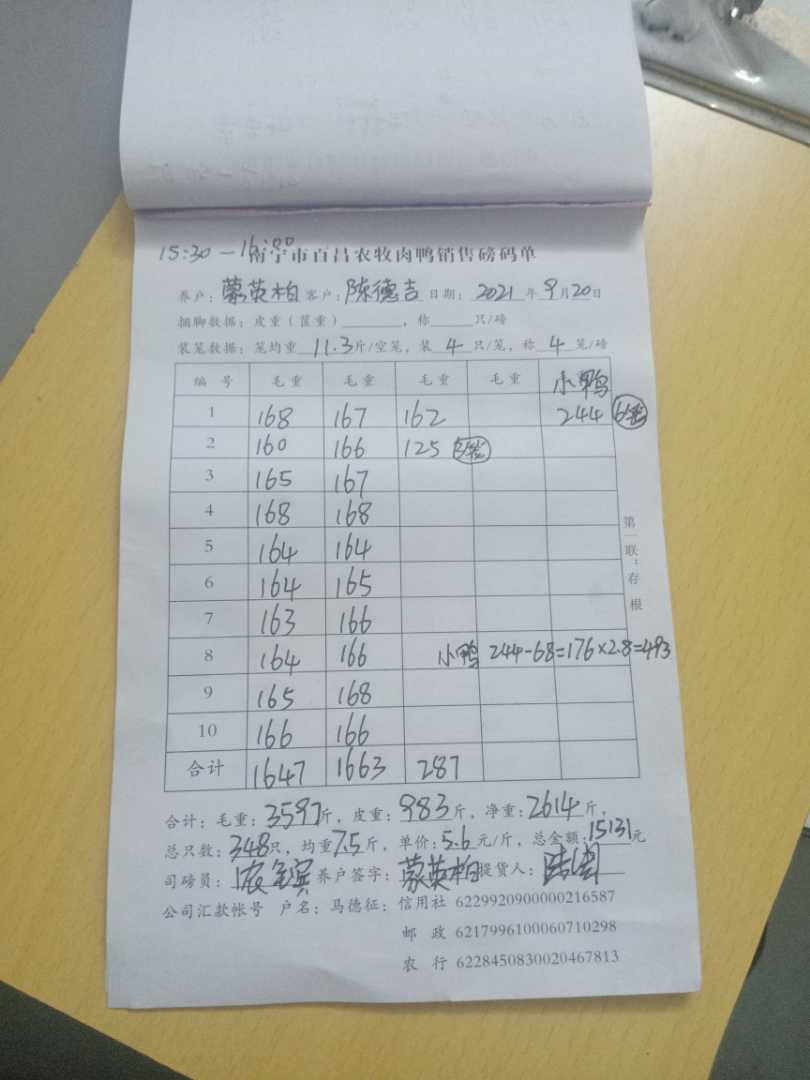 15:30-16:00 南宁市百昌农牧肉鸭销售磅码单
养户:蒙英柏 客户:陈德吉 日期:2021年9月20日
捆脚数据:皮重(筐重)______,称____只/磅
装笼数据:笼均重 11.3 斤/空笼,装 4 只/笼,称 4 笼/磅
编号 毛重 毛重 毛重 毛重 小鸭
1 168 167 162 244 6笼
2 160 166 125 3笼
3 165 167
4 168 168
5 164 164
6 164 165
7 163 166
8 164 166 小鸭 244-68=176×2.8=493
9 165 168
10 166 166
合计 1647 1663 287
第一联:存根
合计:毛重:3597斤,皮重:983斤,净重:2614斤,
总只数:348只,均重7.5斤,单价:5.6元/斤,总金额:15131元
司磅员: 养户签字:蒙英柏 提货人:
公司汇款帐号 户名:马德征:信用社 6229920900000216587
邮政 6217996100060710298
农行 6228450830020467813